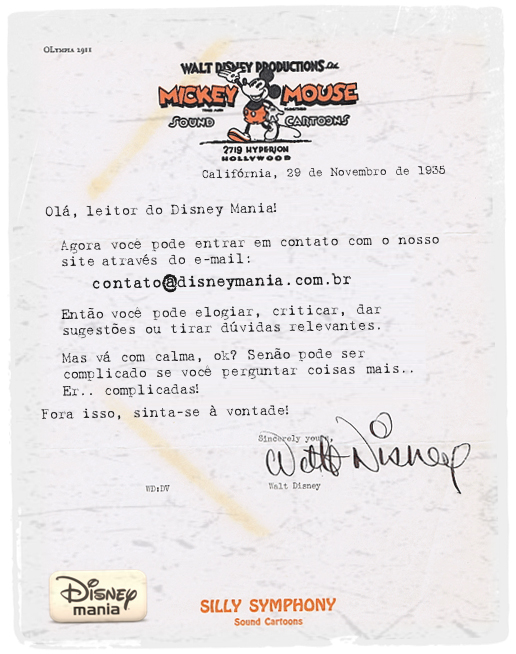 OLympia 2911
WALT DISNEY PRODUCTIONS
MICKEY MOUSE
SOUND CARTOONS
2719 HYPERION
HOLLYWOOD
Califórnia, 29 de Novembro de 1935
Olá, leitor do Disney Mania!
Agora você pode entrar em contato com o nosso
site através do e-mail:
contato@disneymania.com.br
Então você pode elogiar, criticar, dar
sugestões ou tirar dúvidas relevantes.
Mas vá com calma, ok? Senão pode ser
complicado se você perguntar coisas mais..
Er.. complicadas!
Fora isso, sinta-se à vontade!
Sincerely yours,
Walt Disney
WD:DV
Walt Disney
Disney
mania
SILLY SYMPHONY
Sound Cartoons